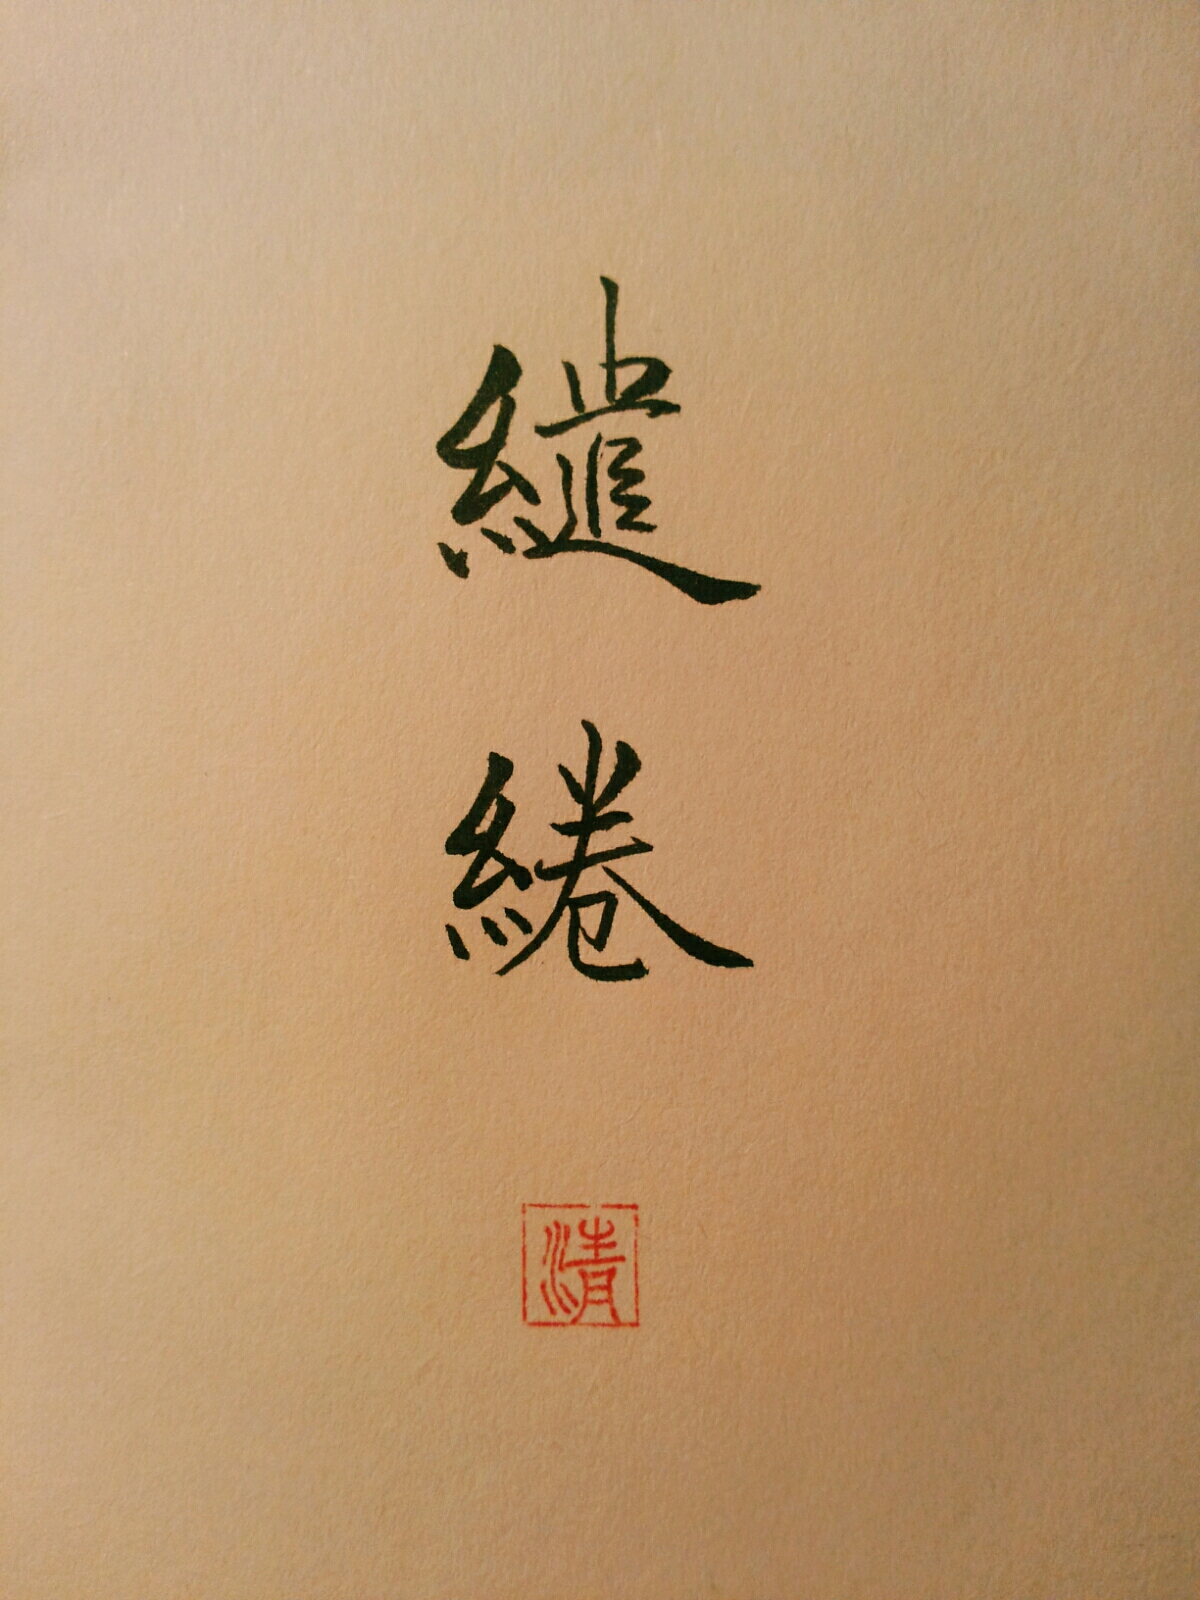 繾
綣
清